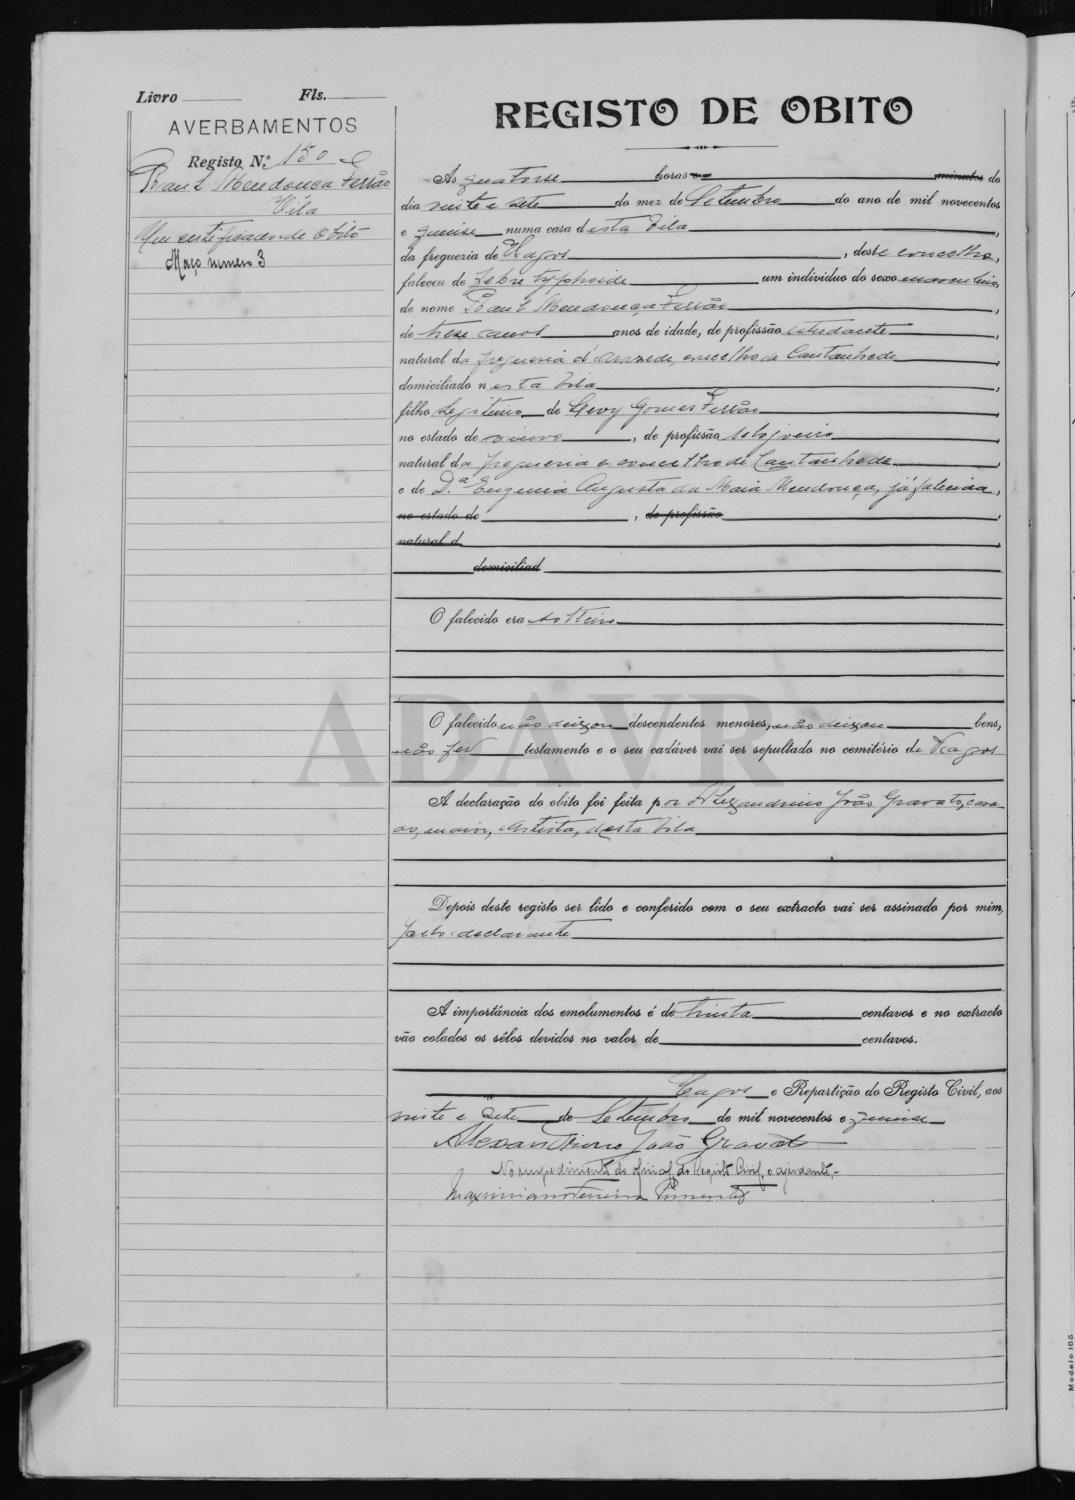 Livro Fls.
AVERBAMENTOS
Registo N.º 150
Raul Mendonça Ferrão
Vila
Um certificado de obito
Março numero 3
REGISTO DE OBITO
Ás quatorse horas e minutos do
dia vinte e sete do mez de Setembro do ano de mil novecentos
e quinse numa casa desta Vila,
da freguezia de Vagos, deste concelho,
faleceu de Febre typhoide um individuo do sexo masculino,
de nome Raul Mendonça Ferrão,
de trese anos anos de idade, de profissão estudante,
natural da freguesia d'Arazede, concelho de Cantanhede
domiciliado nesta Vila,
filho legitimo de Levy Gomes Ferrão,
no estado de viuvo, de profissão relojoeiro,
natural da freguesia e concelho de Cantanhede,
e de D.ª Eugenia Augusta da Maia Mendonça, já falecida,
no estado de, de profissão,
natural d,
domiciliad
O falecido era solteiro
O falecido não deixou descendentes menores, não deixou bens,
não fez testamento e o seu cadáver vai ser sepultado no cemitério de Vagos
A declaração do obito foi feita por Alexandrino João Gravato, casa-
do, maior, artista, desta Vila
Depois deste registo ser lido e conferido com o seu extracto vai ser assinado por mim,
declarante
A importância dos emolumentos é de trinta centavos e no extracto
vão colados os sêlos devidos no valor de centavos.
Vagos e Repartição do Registo Civil, aos
vinte e sete de Setembro de mil novecentos e quinse
Alexandrino João Gravato
No impedimento do oficial do Registo Civil, o ajudante,-
Maximiano Ferreira Pimentel
ADAVR
Modelo 105